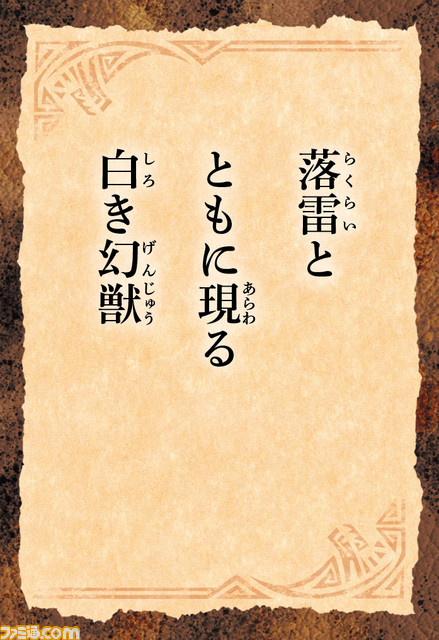 落雷と
ともに現る
白き幻獣
らくらい
あらわ
しろ
げんじゅう
ファミ通.com